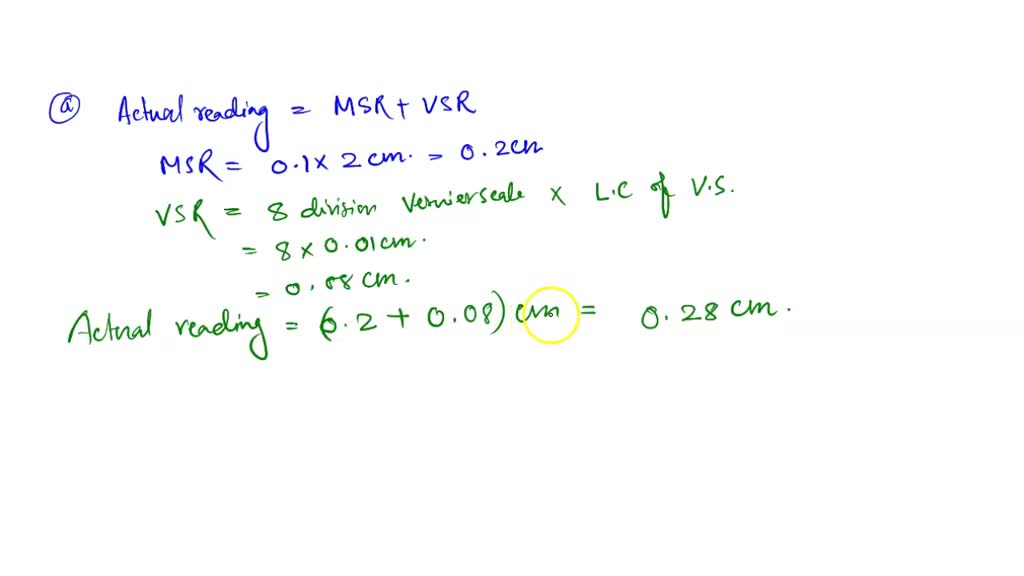 (a) Actual reading = MSR + VSR
MSR = 0.1 × 2 cm. = 0.2 cm
VSR = 8 division Vernierscale × L.C of V.S.
= 8 × 0.01 cm.
= 0.08 cm.
Actual reading = (0.2 + 0.08) cm = 0.28 cm.